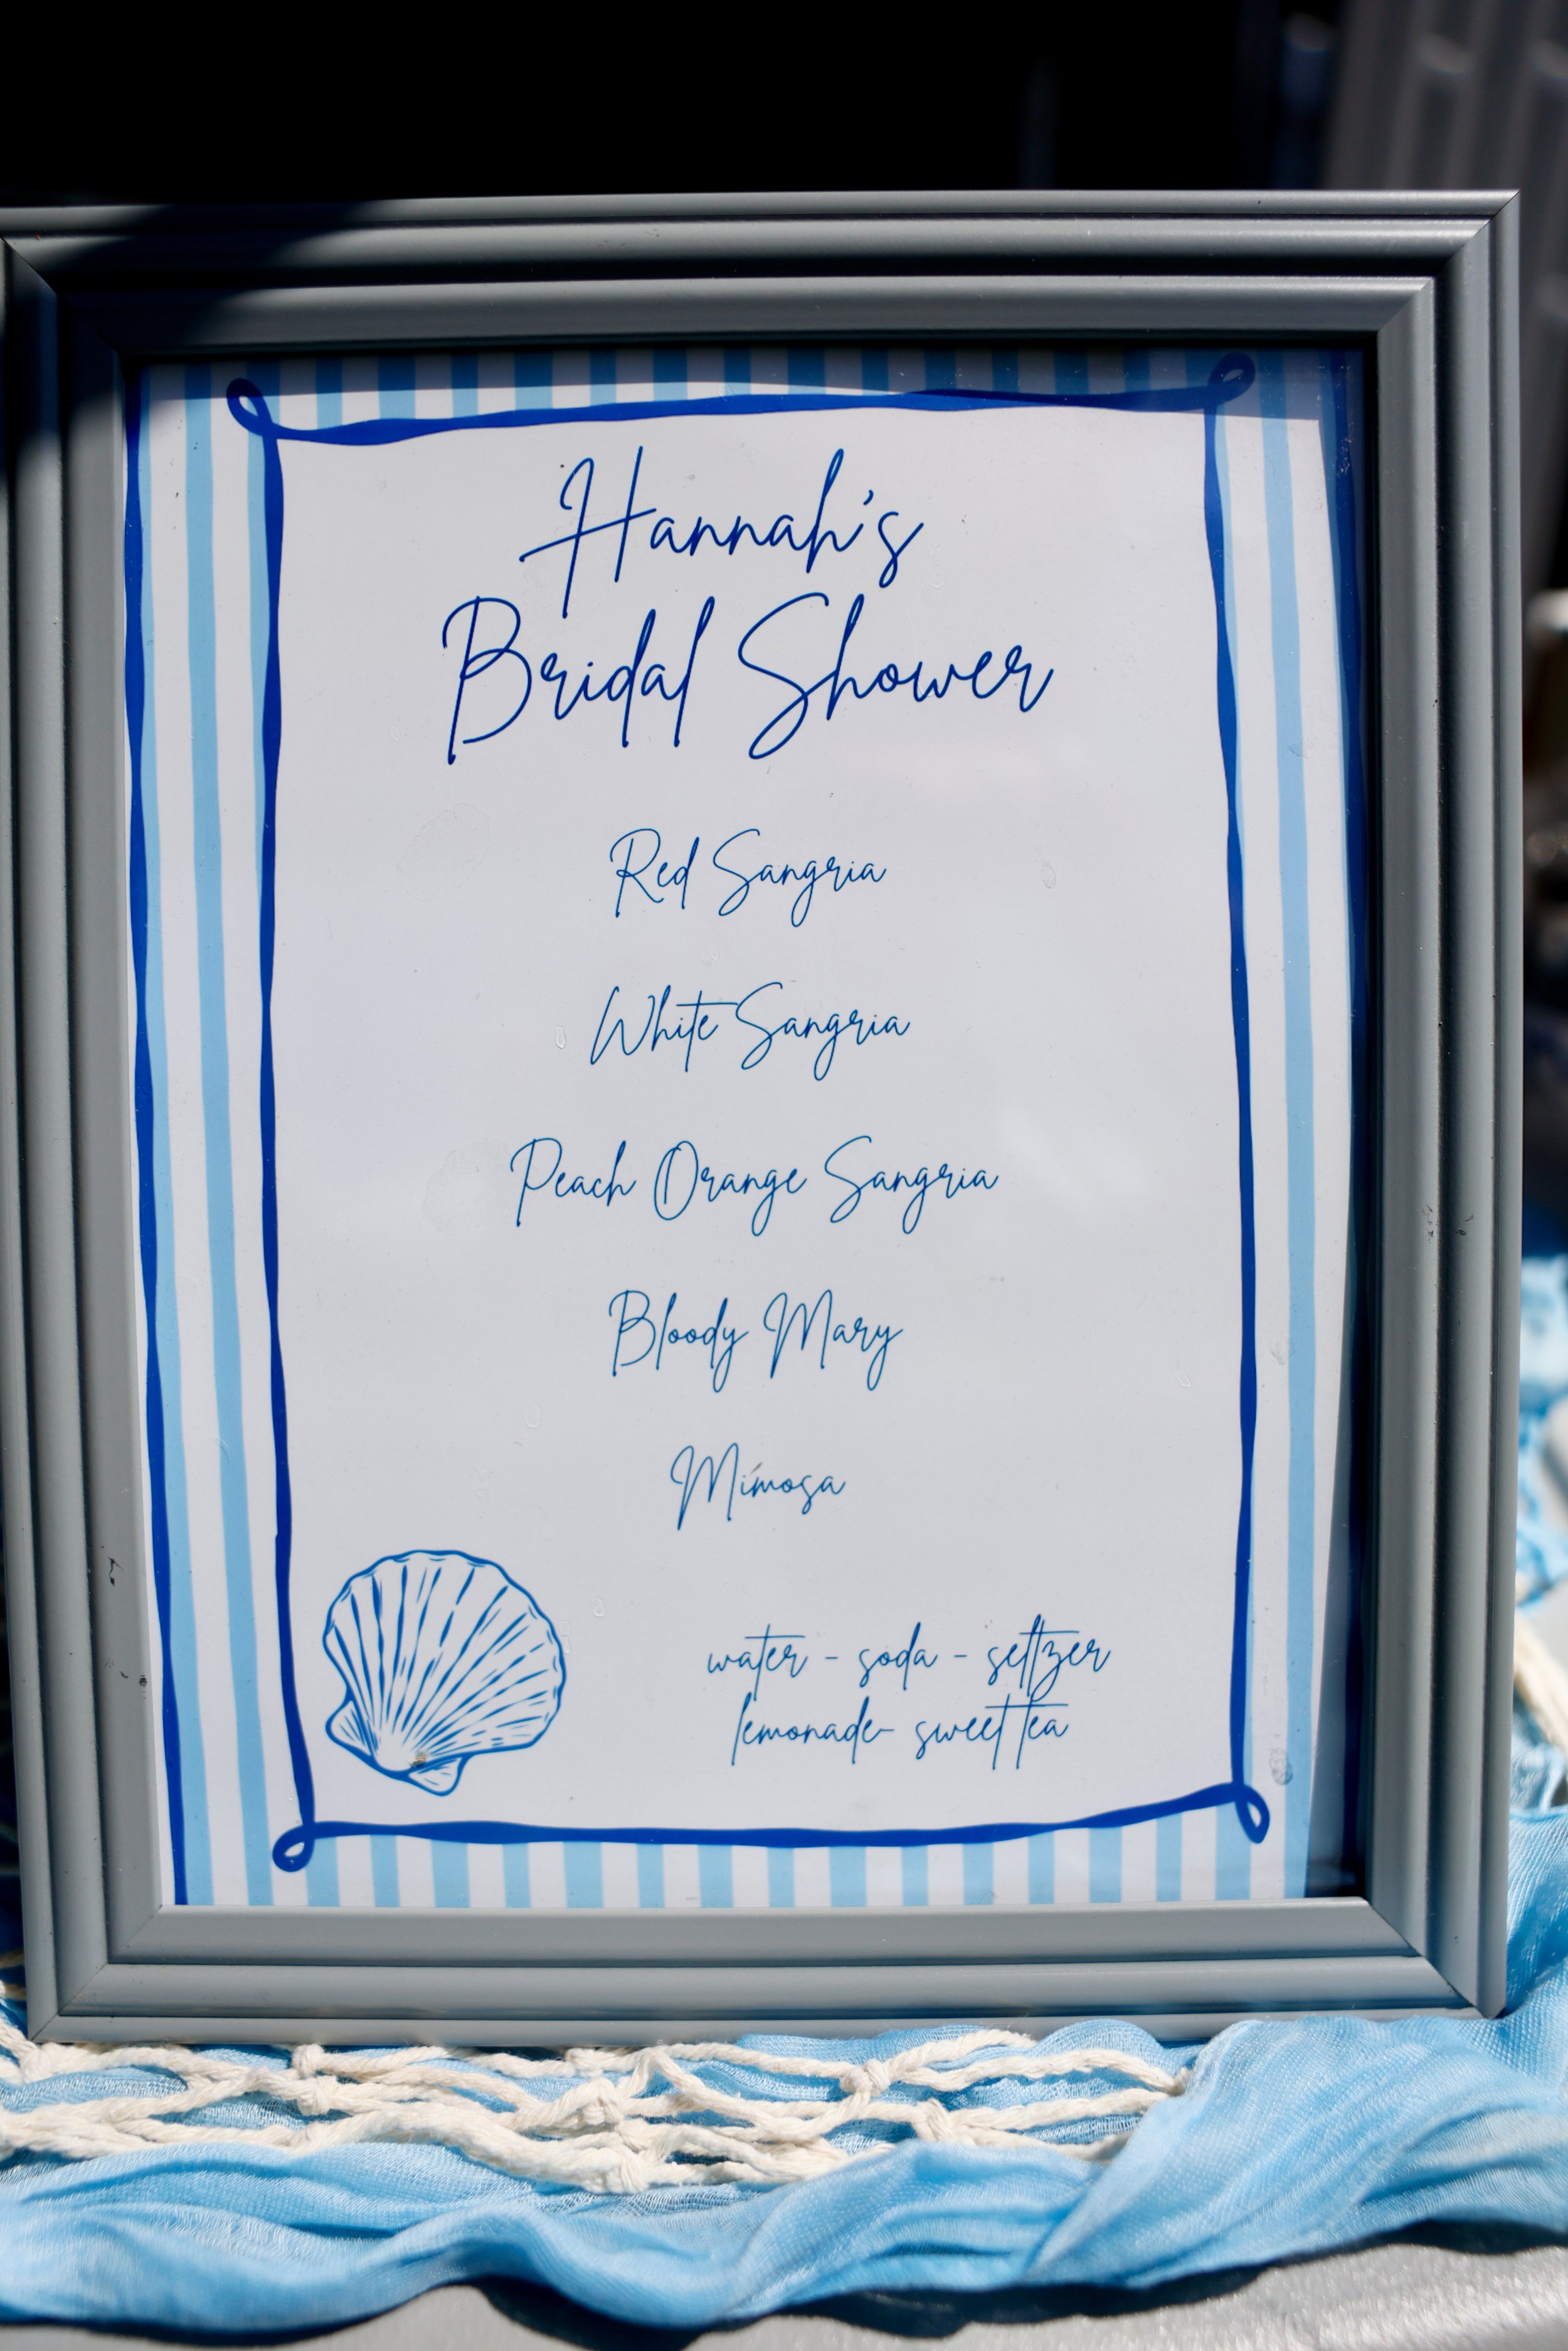 Hannah's
Bridal Shower
Red Sangria
White Sangria
Peach Orange Sangria
Bloody Mary
Mimosa
water - soda - seltzer
lemonade- sweet tea